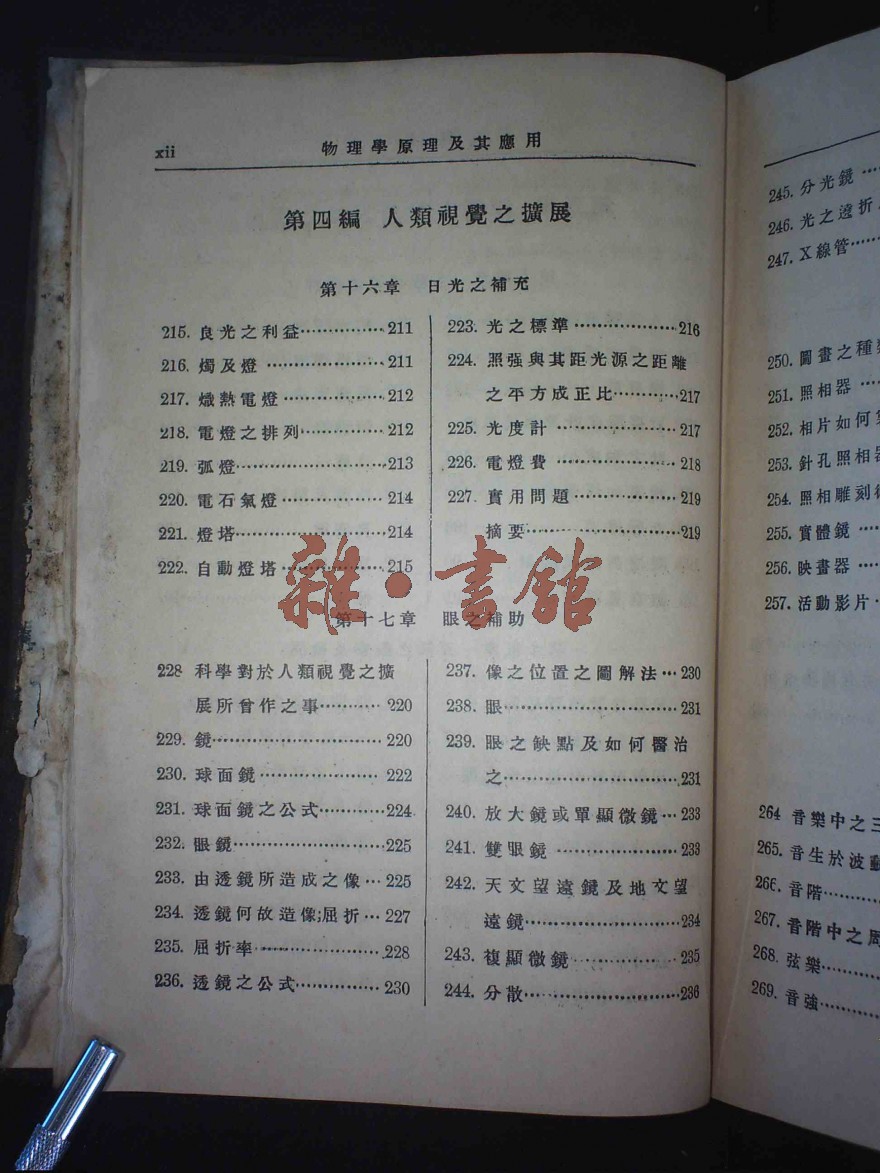 xii
物理學原理及其應用
第四編 人類視覺之擴展
第十六章 日光之補充
215. 良光之利益················211
216. 燭及燈 ····················211
217. 熾熱電燈 ·················212
218. 電燈之排列···············212
219. 弧燈·························213
220. 電石氣燈 ·················214
221. 燈塔·························214
222. 自動燈塔··················215
223. 光之標準 ···················216
224. 照强與其距光源之距離
之平方成正比············217
225. 光度計 ······················217
226. 電燈費 ······················218
227. 實用問題 ···················219
摘要·························219
第十七章 眼之補助
228 科學對於人類視覺之擴
展所曾作之事·········· 220
229. 鏡···························· 220
230. 球面鏡 ···················· 222
231. 球面鏡之公式············224
232. 眼鏡·························225
233. 由透鏡所造成之像 ··· 225
234. 透鏡何故造像;屈折 ··· 227
235. 屈折率······················228
236. 透鏡之公式··············· 230
237. 像之位置之圖解法 ··· 230
238. 眼·····························231
239. 眼之缺點及如何醫治
之·····························231
240. 放大鏡或單顯微鏡 ··· 233
241. 雙眼鏡 ····················· 233
242. 天文望遠鏡及地文望
遠鏡··························234
243. 複顯微鏡 ··················235
244. 分散··························236
雜·書舘
245. 分光鏡 ···
246. 光之遶折
247. X線管······
250. 圖畫之種類
251. 照相器 ···
252. 相片如何
253. 針孔照相器
254. 照相雕刻
255. 實體鏡 ···
256. 映畫器 ···
257. 活動影片 ·
264 音樂中之三
265. 音生於波動
266. 音階·········
267. 音階中之周
268. 弦樂·········
269. 音強·········